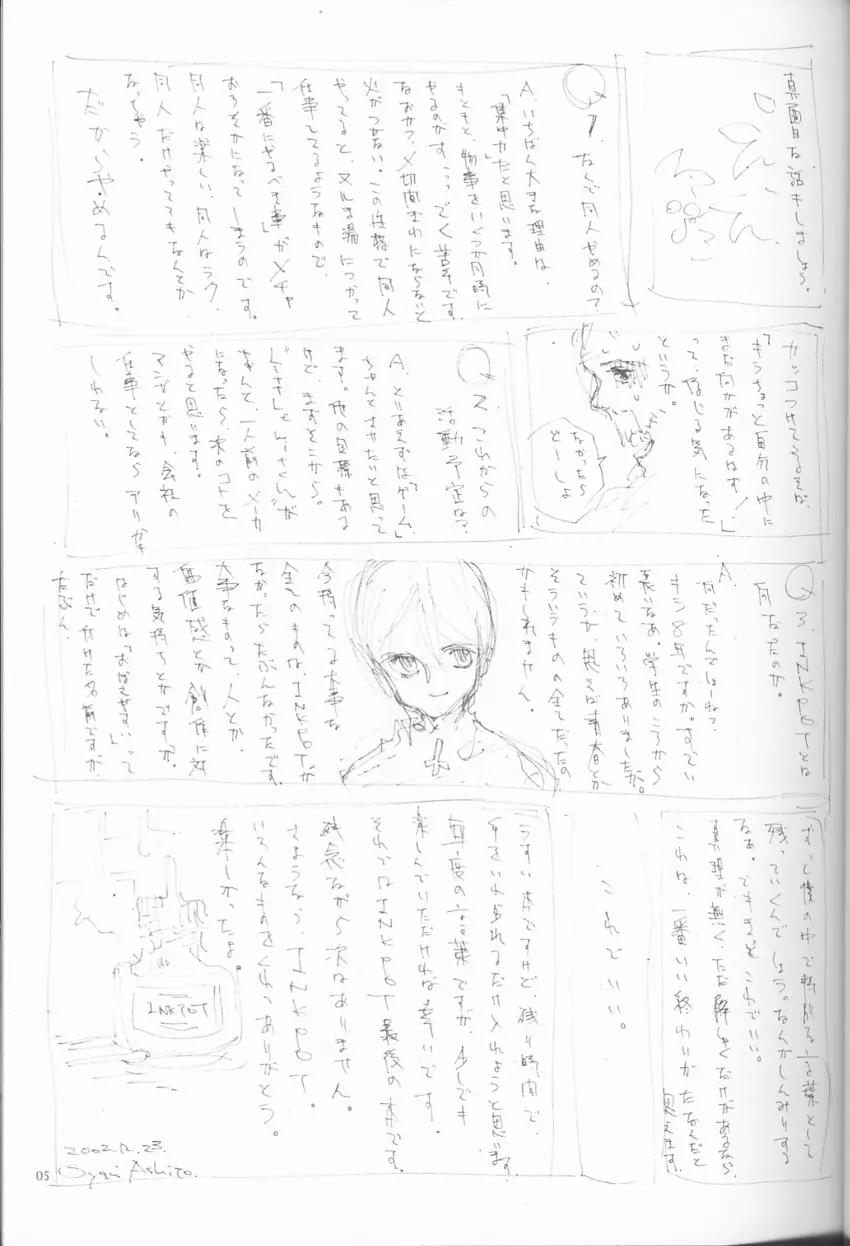 真面目な話をしましょう。
Q1. なんで同人やめるの?
A. いちばん大きな理由は、
「集中力」だと思います。
もともと、物事をいくつか同時に
やるのがすっっごく苦手です。
なおかつ、〆切間ぎわにならないと
火がつかない。この性格で同人
やってると、ヌルま湯につかって
仕事してるようなもので、
「一番にやるべき事」がメチャ
おろそかになってしまうのです。
同人は楽しい、同人はラク、
同人だけやってきなんとか
なっちゃう。
だからやめるんです。
カッコつけてゆるが
「もうちょっと自分の中に
まだ何かがあるはず!」
って、信じる気になった
というか。
なかったら
どーしよ
Q2. これからの
活動予定は?
A. とりあえずは「ゲーム」
ちゃんとさせたいと思って
ます。他の目標もある
けど、まずそこから。
ちゃんと、一人前のメーカ
になったら、次のコトを
やると思います。
マンガとかも、会社の
仕事としてなら アリかも
しれない。
Q3. INKPOTとは
何だったのか。
A.
何だったんでしょーねえ?
もう8年ですか。すごい
長いなあ。学生のころから
初めていろいろありましたが。
ていうか、思えば青春とか
そういうものの全てだったの
かもしれません。
今持ってる大事な
全てのものは、INKPOTが
なかったらたぶんなかったです。
大事なものって、人とか、
価値感とか創作に対
する気持ちとかですが。
はじめは「おぼえやすい」って
だけで付けた名前ですが、
たぶん、
ずっと僕の中で特別な言葉として
残っていくんでしょう。なんかしんみりする
なぁ。でもきっとこれでいい。
真理が無く、ただ解もくだけがあるなら、
これは、一番いい終わりかたなんだと
思えます。
これでいい。
うすい本ですけど、残り時間で、
手をいれられるだけ入れようと思います。
毎度の言葉ですが、少しでも
楽しんでいただければ幸いです。
それでは INKPOT 最後の本です。
残念ながら次はありません。
さようなら、INKPOT。
いろんなものをくれてありがとう。
楽しかったよ。
INKPOT
2002.12.23.
Oyari Ashito.
05